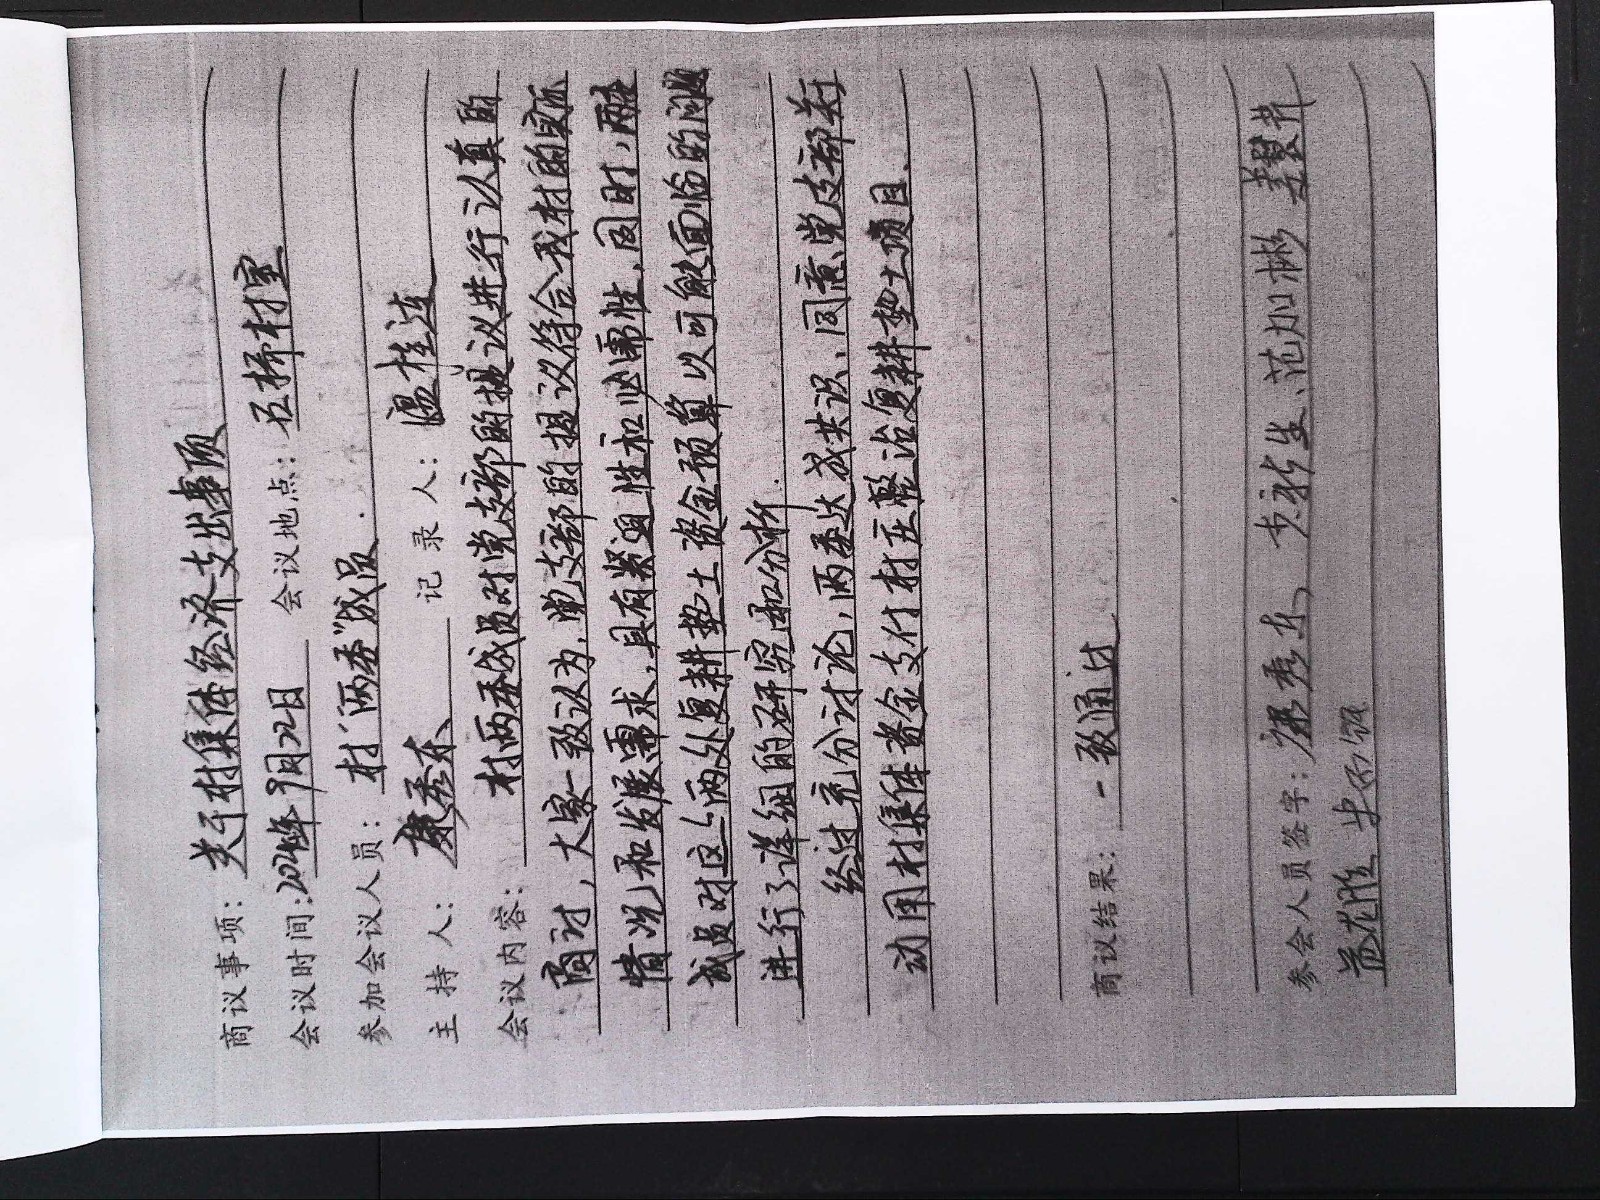 商议事项：关于村集体经济支出事项
会议时间：2024年9月22日 会议地点：五桥村室
参加会议人员：村“两委”成员．
主 持 人：康秀东 记 录 人：温桂连
会议内容：村两委成员对党支部的提议进行认真的
商讨，大家一致认为，党支部的提议符合我村的实际
情况和发展需求，具有紧迫性和必需性，同时，两委
成员对这个两处复耕垫土资金预算以可能面临的问题
进行了详细的研究和分析．
经过充分讨论，两委达成共识、同意党支部关于
动用村集体资金支付村庄整治复耕垫土项目．
商议结果：一致通过
参会人员签字：康秀东、步永生、范加彬